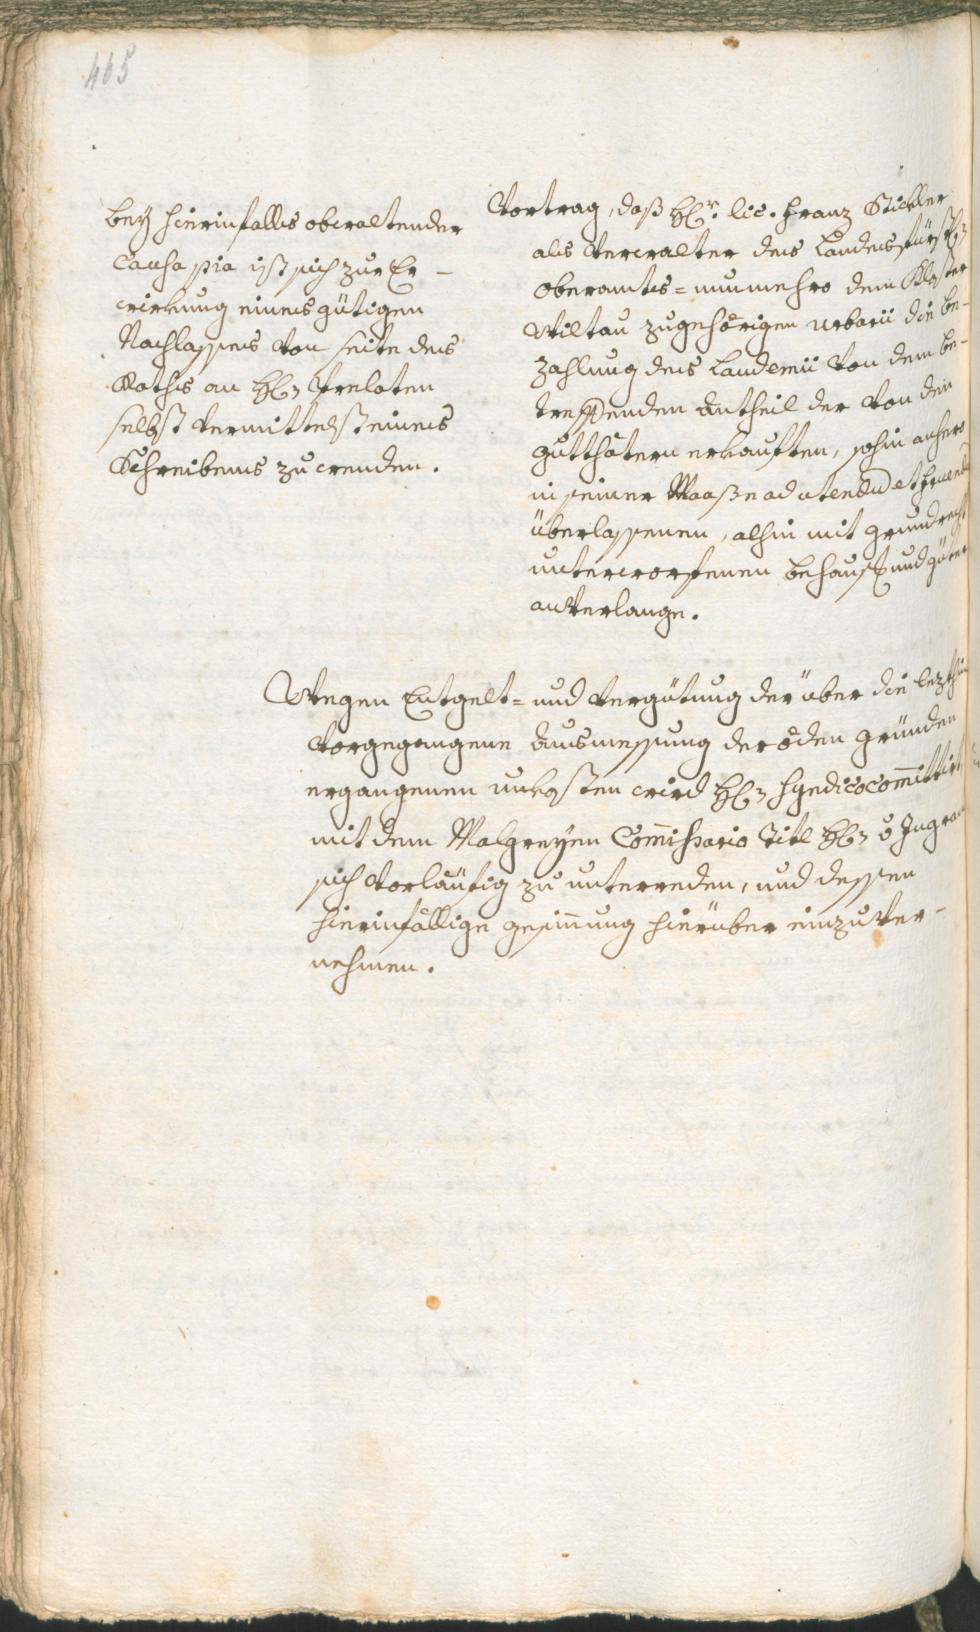 465
bey hierinfalls obwaltender
causa pia ist sich zur Er-
wirkung eines gütigen
Nachlasses von seite des
Raths an H: Prelaten
selbst vermittelst eines
Schreibens zu wenden.
Vortrag, daß Hr. lic. Franz Stickler
als Verwalter des Landesfürstl:
Oberamtes= nunmehro dem Kloster
Wiltau zugehörigen Urbarii die be-
zahlung des Laudemii von dem be-
treffenden Antheil der von den
gutthätern erkauften, sohin anhero
in seiner Maaße ad utendu et fruend
überlassenen, alhin mit grundrecht
unterworfenen behaus: und güter
anverlange.
Wegen Entgelt= und Vergütung der über die lezthin
vorgegangene Ausmessung der öden gründen
ergangenen unkosten wird H: Syndico com̄ittirt
mit dem Malgreyen Com̄issario Titl H: v Ingram
sich vorläufig zu unterreden, und dessen
hierinfällige gesin̄ung hierüber einzuver-
nehmen.